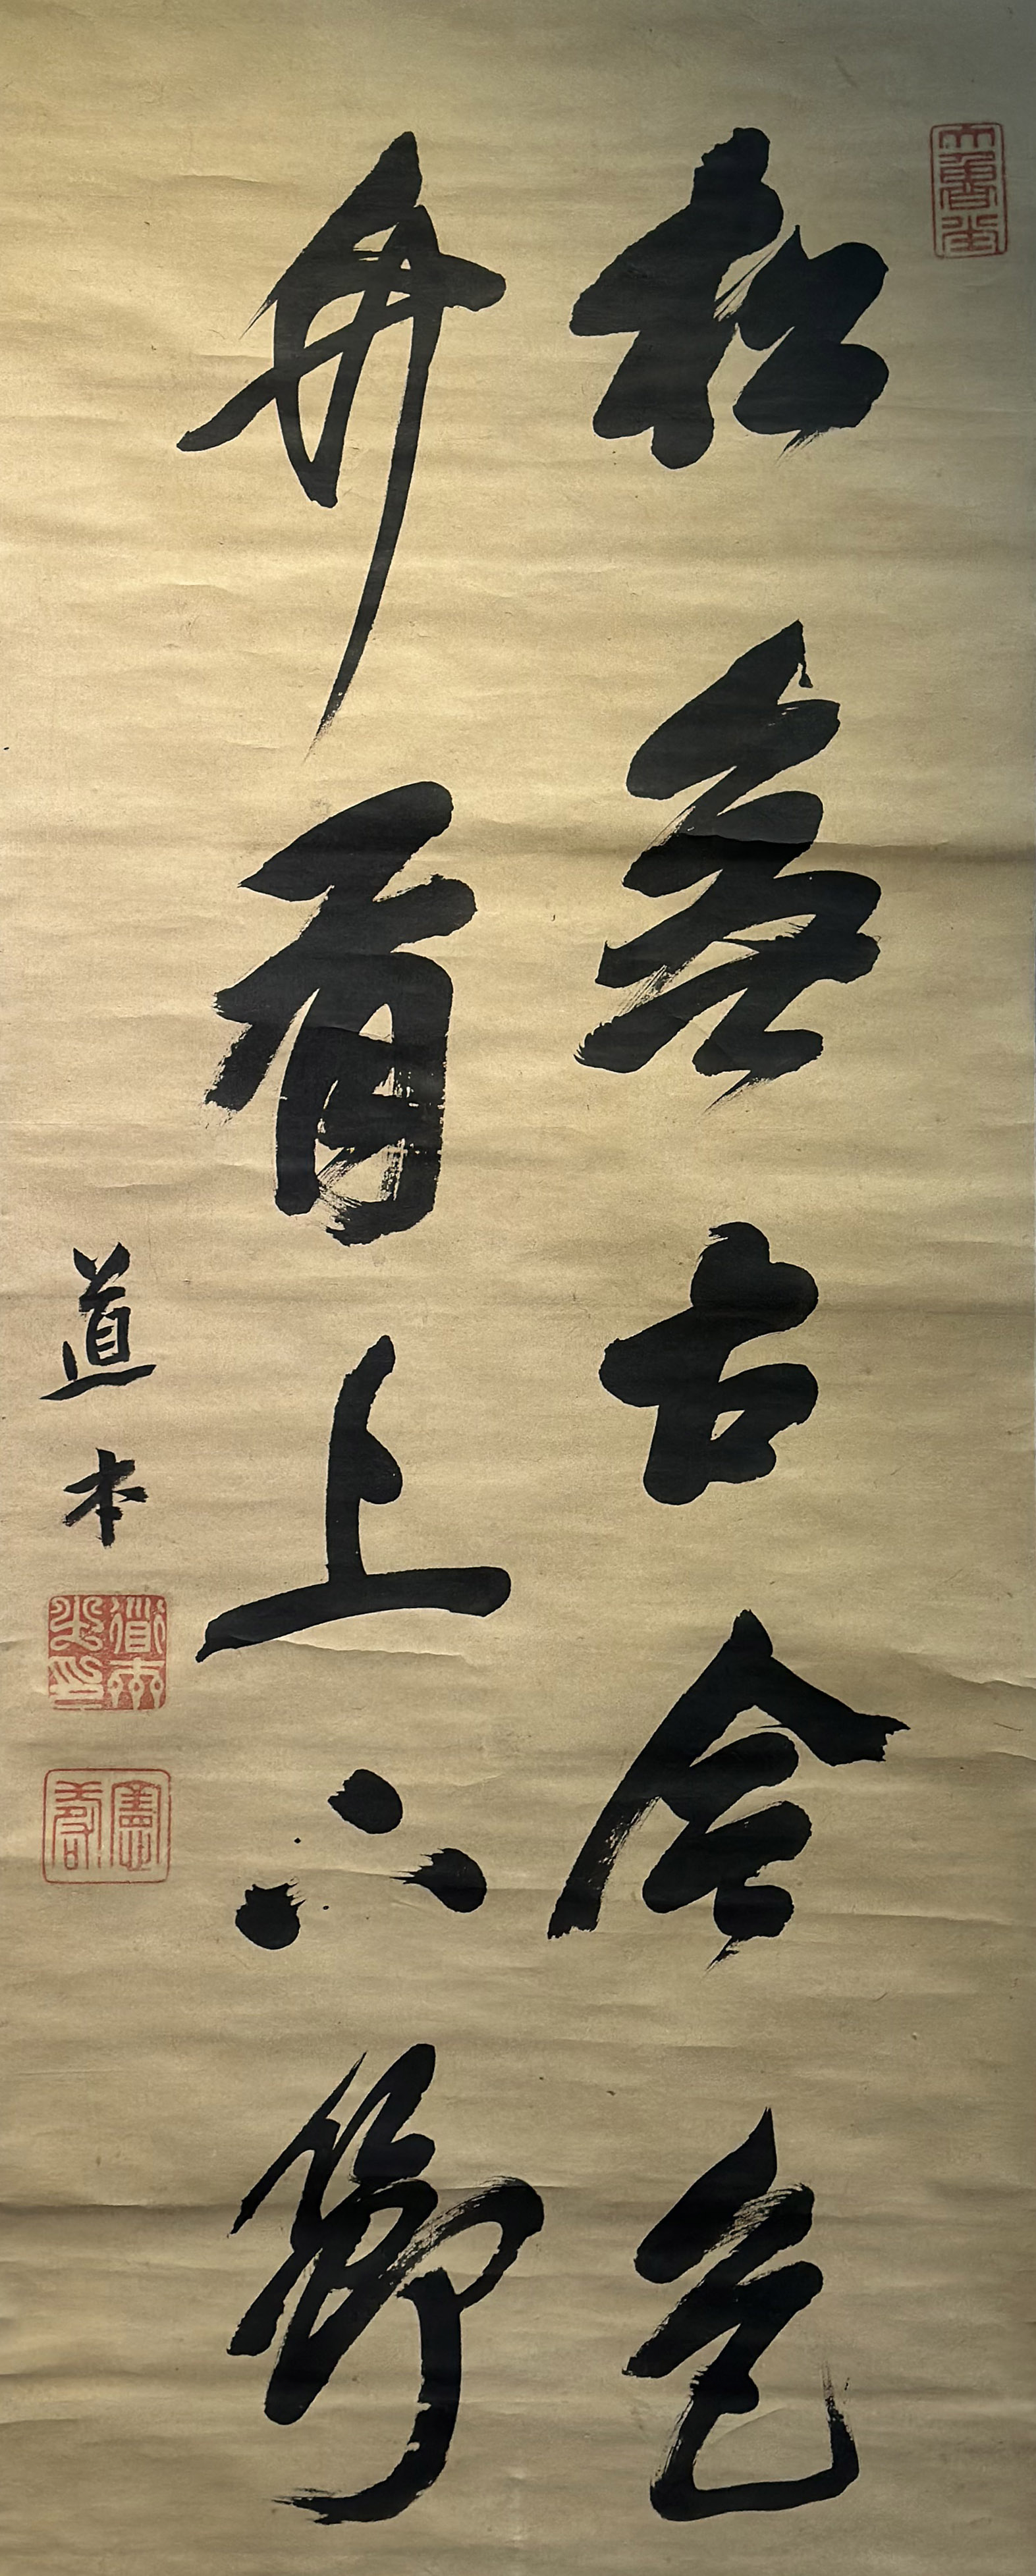 松無古今色
竹有上下節
道本